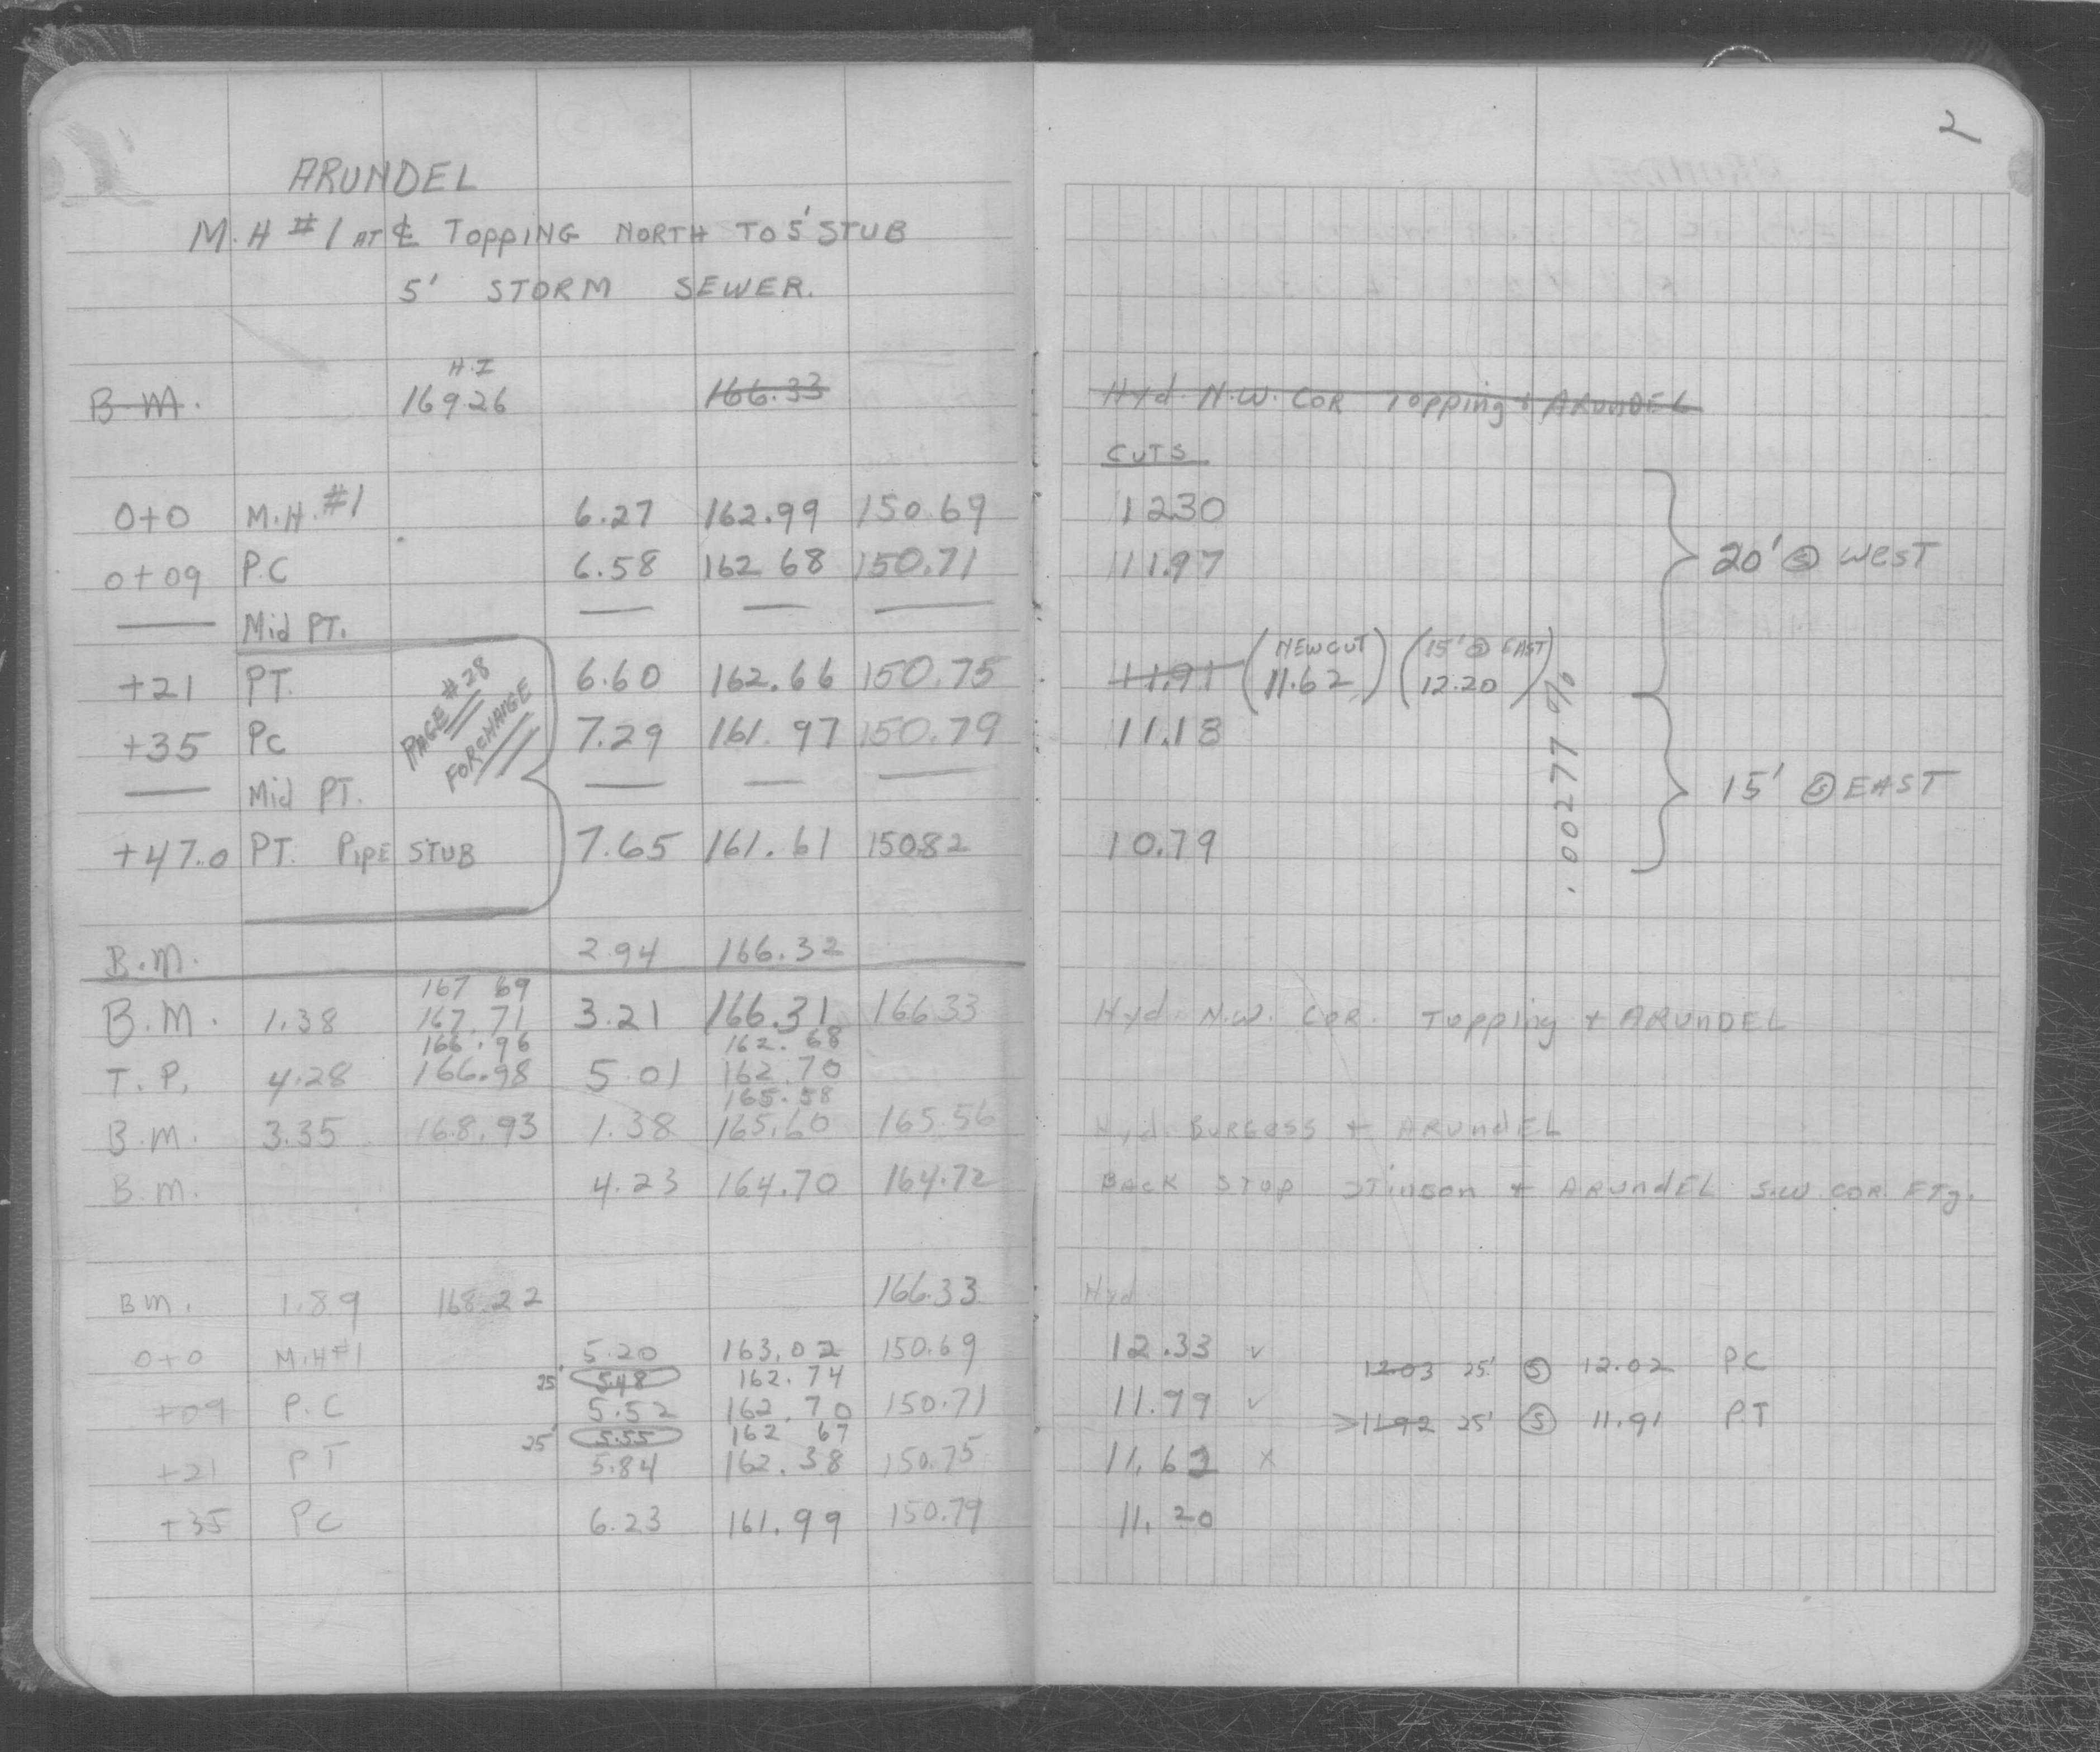 2
ARUNDEL
M.H #1 AT ℄ TOPPING NORTH TO 5' STUB
5' STORM SEWER.
H.I
B.M. 169.26 166.33 Hyd. N.W. COR Topping + ARUNDEL
CUTS
0+0 M.H. #1 6.27 162.99 150.69 12.30
0+09 P.C 6.58 162.68 150.71 11.97
20' Ⓢ WEST
— Mid PT. — — —
+21 PT. 6.60 162.66 150.75 11.91 (NEW CUT 11.62) (15' Ⓢ EAST 12.20)
PAGE #28 FOR CHANGE
+35 PC 7.29 161.97 150.79 11.18
— Mid PT. — — —
15' Ⓢ EAST
.00277 %
+47.0 PT. PIPE STUB 7.65 161.61 150.82 10.79
B.M. 2.94 166.32
167 69
B.M. 1.38 167.71 3.21 166.31 166.33 Hyd. N.W. COR. Topping + ARUNDEL
166.96 162.68
T.P. 4.28 166.98 5.01 162.70
165.58
B.M. 3.35 168.93 1.38 165.60 165.56 Hyd. BURGESS + ARUNDEL
B.M. 4.23 164.70 164.72 BACK STOP STINSON + ARUNDEL S.W. COR FTg.
BM. 1.89 168.22 166.33 Hyd.
0+0 M.H #1 5.20 163.02 150.69 12.33 ✓
25' 5.48 162.74 12.03 25' Ⓢ 12.02 PC
+09 P.C 5.52 162.70 150.71 11.99 ✓
25' 5.55 162 67 >11.92 25' Ⓢ 11.91 PT
+21 PT 5.84 162.38 150.75 11.62 x
+35 PC 6.23 161.99 150.79 11.20